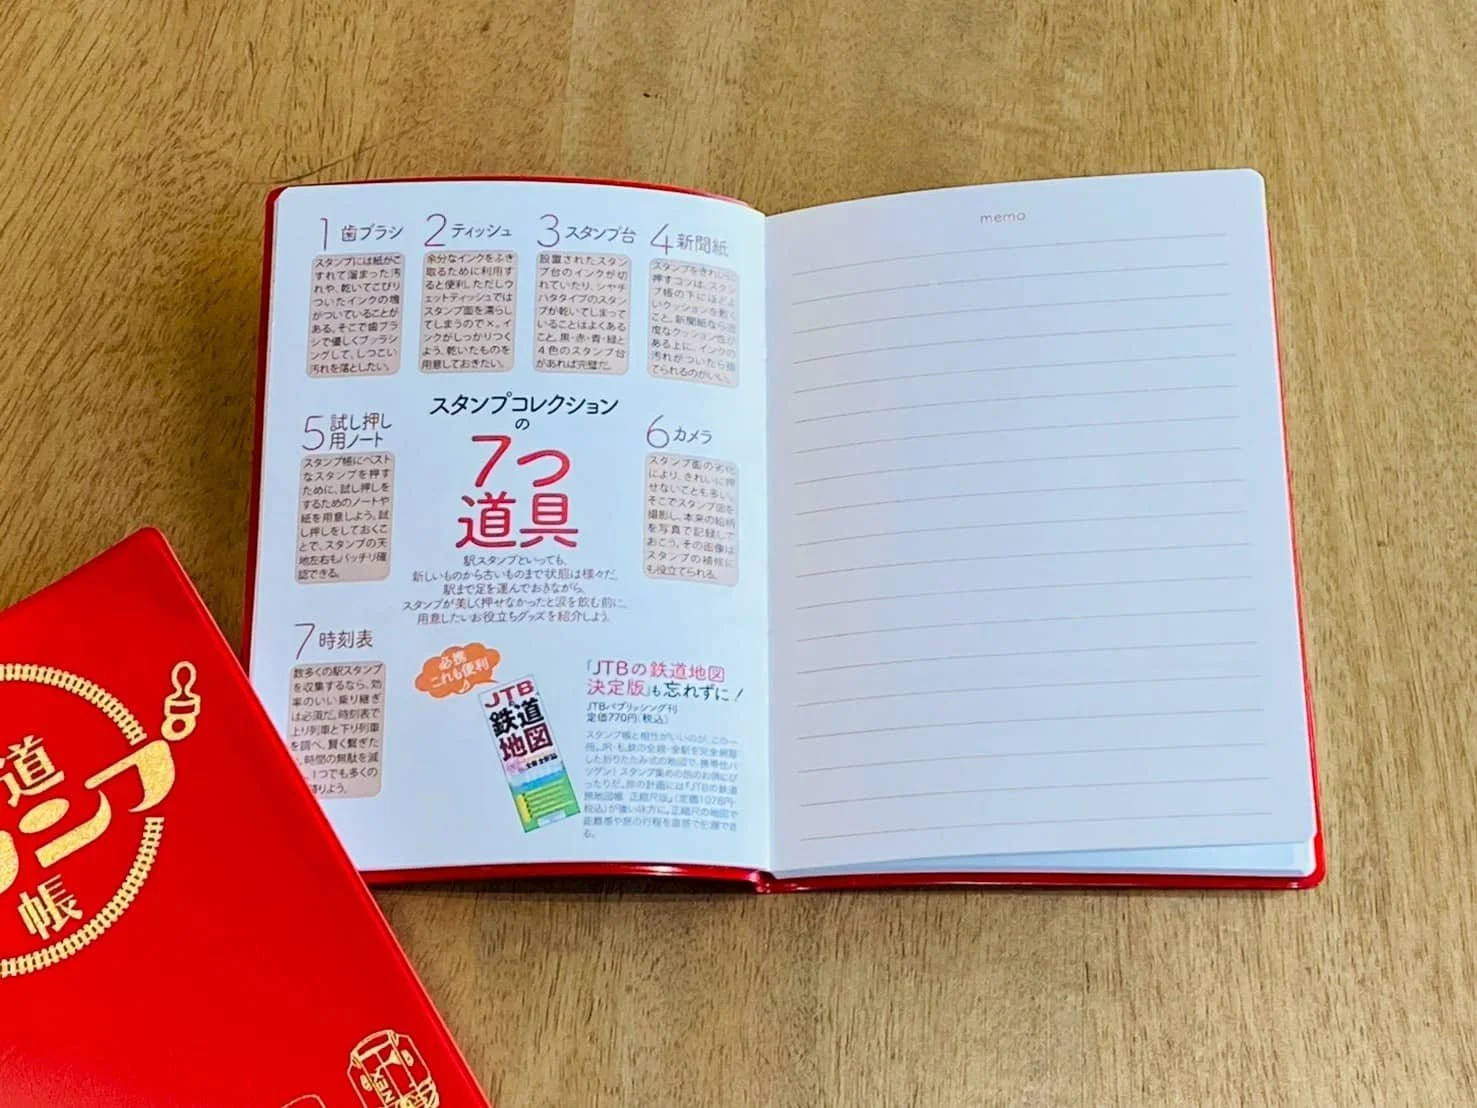 1 歯ブラシ
スタンプには紙がこ
すれて溜まった汚
れや、乾いてこびり
ついたインクの塊
がついていることが
ある。そこで歯ブラ
シで優しくブラッシ
ングして、しつこい
汚れを落としたい。
2 ティッシュ
余分なインクをふき
取るために利用す
ると便利。ただしウ
ェットティッシュでは
スタンプ面を濡らし
てしまうので×。イ
ンクがしっかりつく
よう、乾いたものを
用意しておきたい。
3 スタンプ台
設置されたスタン
プ台のインクが切
れていたり、シヤチ
ハタタイプのスタン
プが乾いてしまって
いることはよくある
こと。黒・赤・青・緑と
4色のスタンプ台
があれば完璧だ。
4 新聞紙
スタンプをきれいに
押すコツは、スタン
プ帳の下にほどよ
いクッションを敷く
こと。新聞紙なら適
度なクッション性が
ある上に、インクの
汚れがついたら捨
てられるのがいい。
スタンプコレクション
の
7つ
道具
駅スタンプといっても、
新しいものから古いものまで状態は様々だ。
駅まで足を運んでおきながら、
スタンプが美しく押せなかったと涙を飲む前に、
用意したいお役立ちグッズを紹介しよう。
5 試し押し
用ノート
スタンプ帳にベスト
なスタンプを押す
ために、試し押しを
するためのノートや
紙を用意しよう。試
し押しをしておくこ
とで、スタンプの天
地左右もバッチリ確
認できる。
6 カメラ
スタンプ面の劣化
により、きれいに押
せないことも多い。
そこでスタンプ図を
撮影し、本来の絵柄
を写真で記録して
おこう。その画像は
スタンプの補修に
も役立てられる。
7 時刻表
数多くの駅スタンプ
を収集するなら、効
率のいい乗り継ぎ
は必須だ。時刻表で
上り列車と下り列車
を調べ、賢く繋ぎた
、時間の無駄を減
、1つでも多くの
りよう。
必携
これも便利
JTB
鉄道
地図
「JTBの鉄道地図
決定版」も忘れずに!
JTBパブリッシング刊
定価770円(税込)
スタンプ帳と相性がいいのが、この一
冊。JR・私鉄の全線・全駅を完全網羅
した折りたたみ式の地図で、携帯性バ
ツグン!スタンプ集めの旅のお供にぴ
ったりだ。旅の計画には『JTBの鉄道
地図帳 正縮尺版』(定価1078円・
税込)が強い味方に。正縮尺の地図で
距離感や旅の行程を直感で把握でき
る。
memo
道
ンプ
帳
NEX